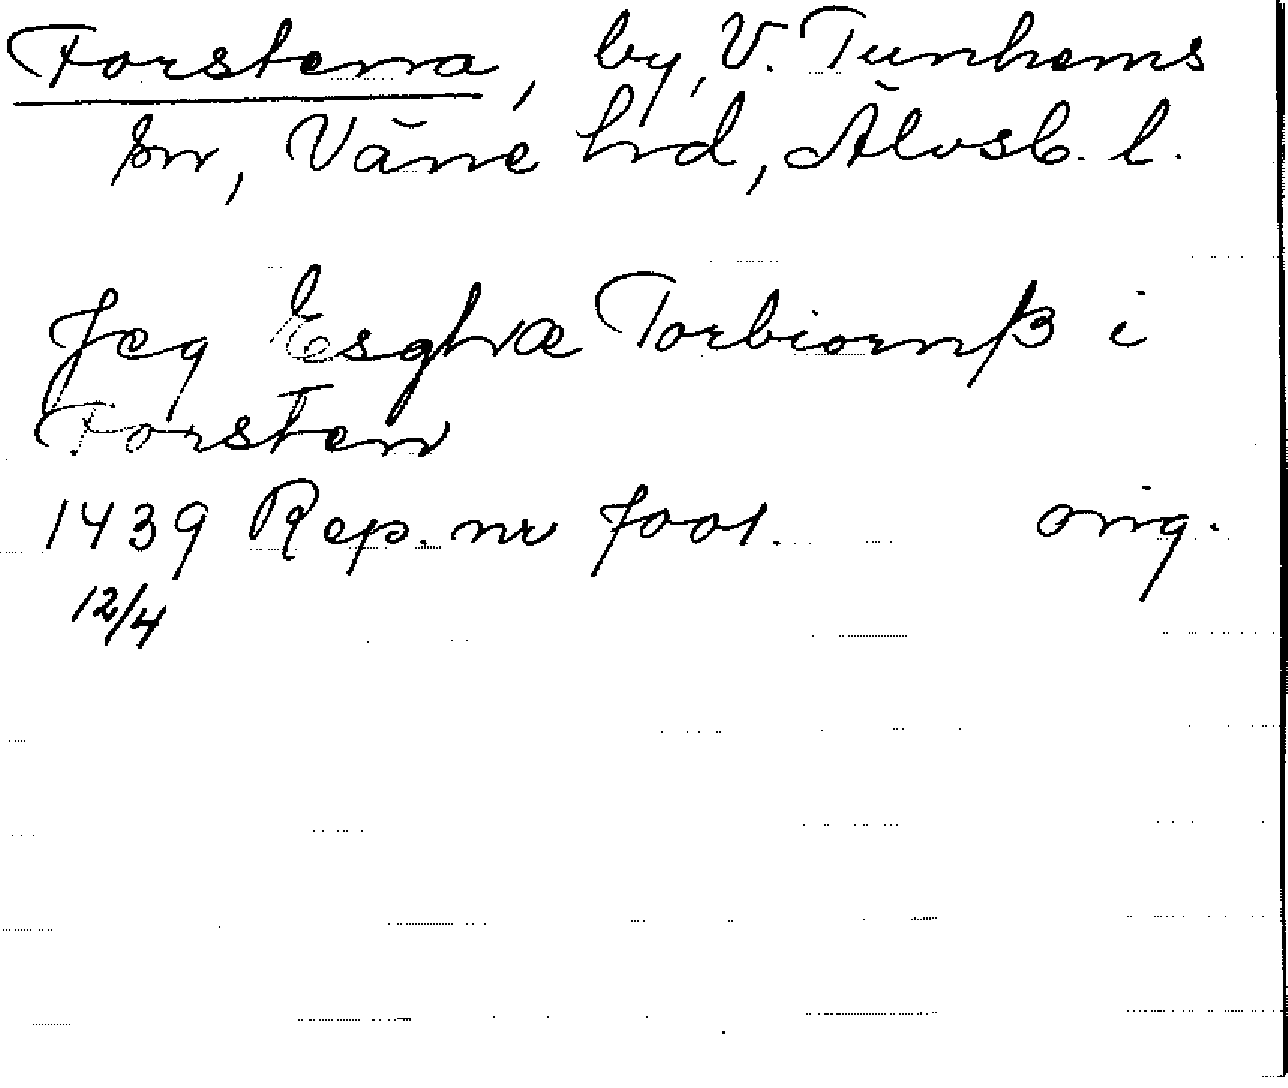 Forstena, by, V. Tunhems
sn, Väne hrd, Älvsb. l.
Jeg Esghæ Torbiornß i
Forsten
1439 Rep. nr 7001. orig.
12/4